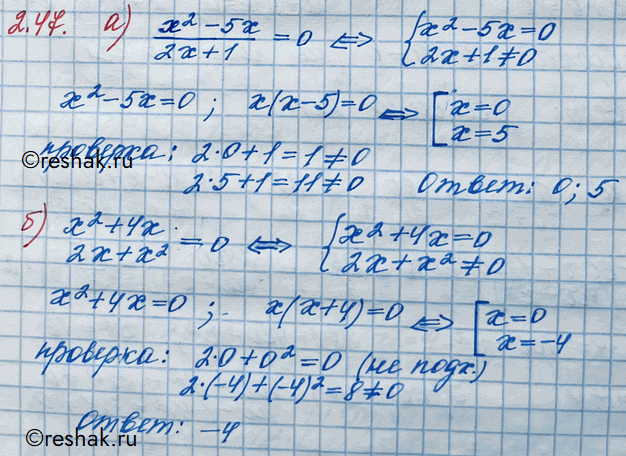 2.47. а) (x²-5x)/(2x+1) = 0 ⇔ { x²-5x=0
2x+1≠0
x²-5x=0 ; x(x-5)=0 ⇔ [ x=0
x=5
проверка: 2·0+1=1≠0
©reshak.ru
2·5+1=11≠0 Ответ: 0; 5
б) (x²+4x)/(2x+x²) = 0 ⇔ { x²+4x=0
2x+x²≠0
x²+4x=0 ; x(x+4)=0 ⇔ [ x=0
x=-4
проверка: 2·0+0²=0 (не подх.)
2·(-4)+(-4)²=8≠0
Ответ: -4
©reshak.ru